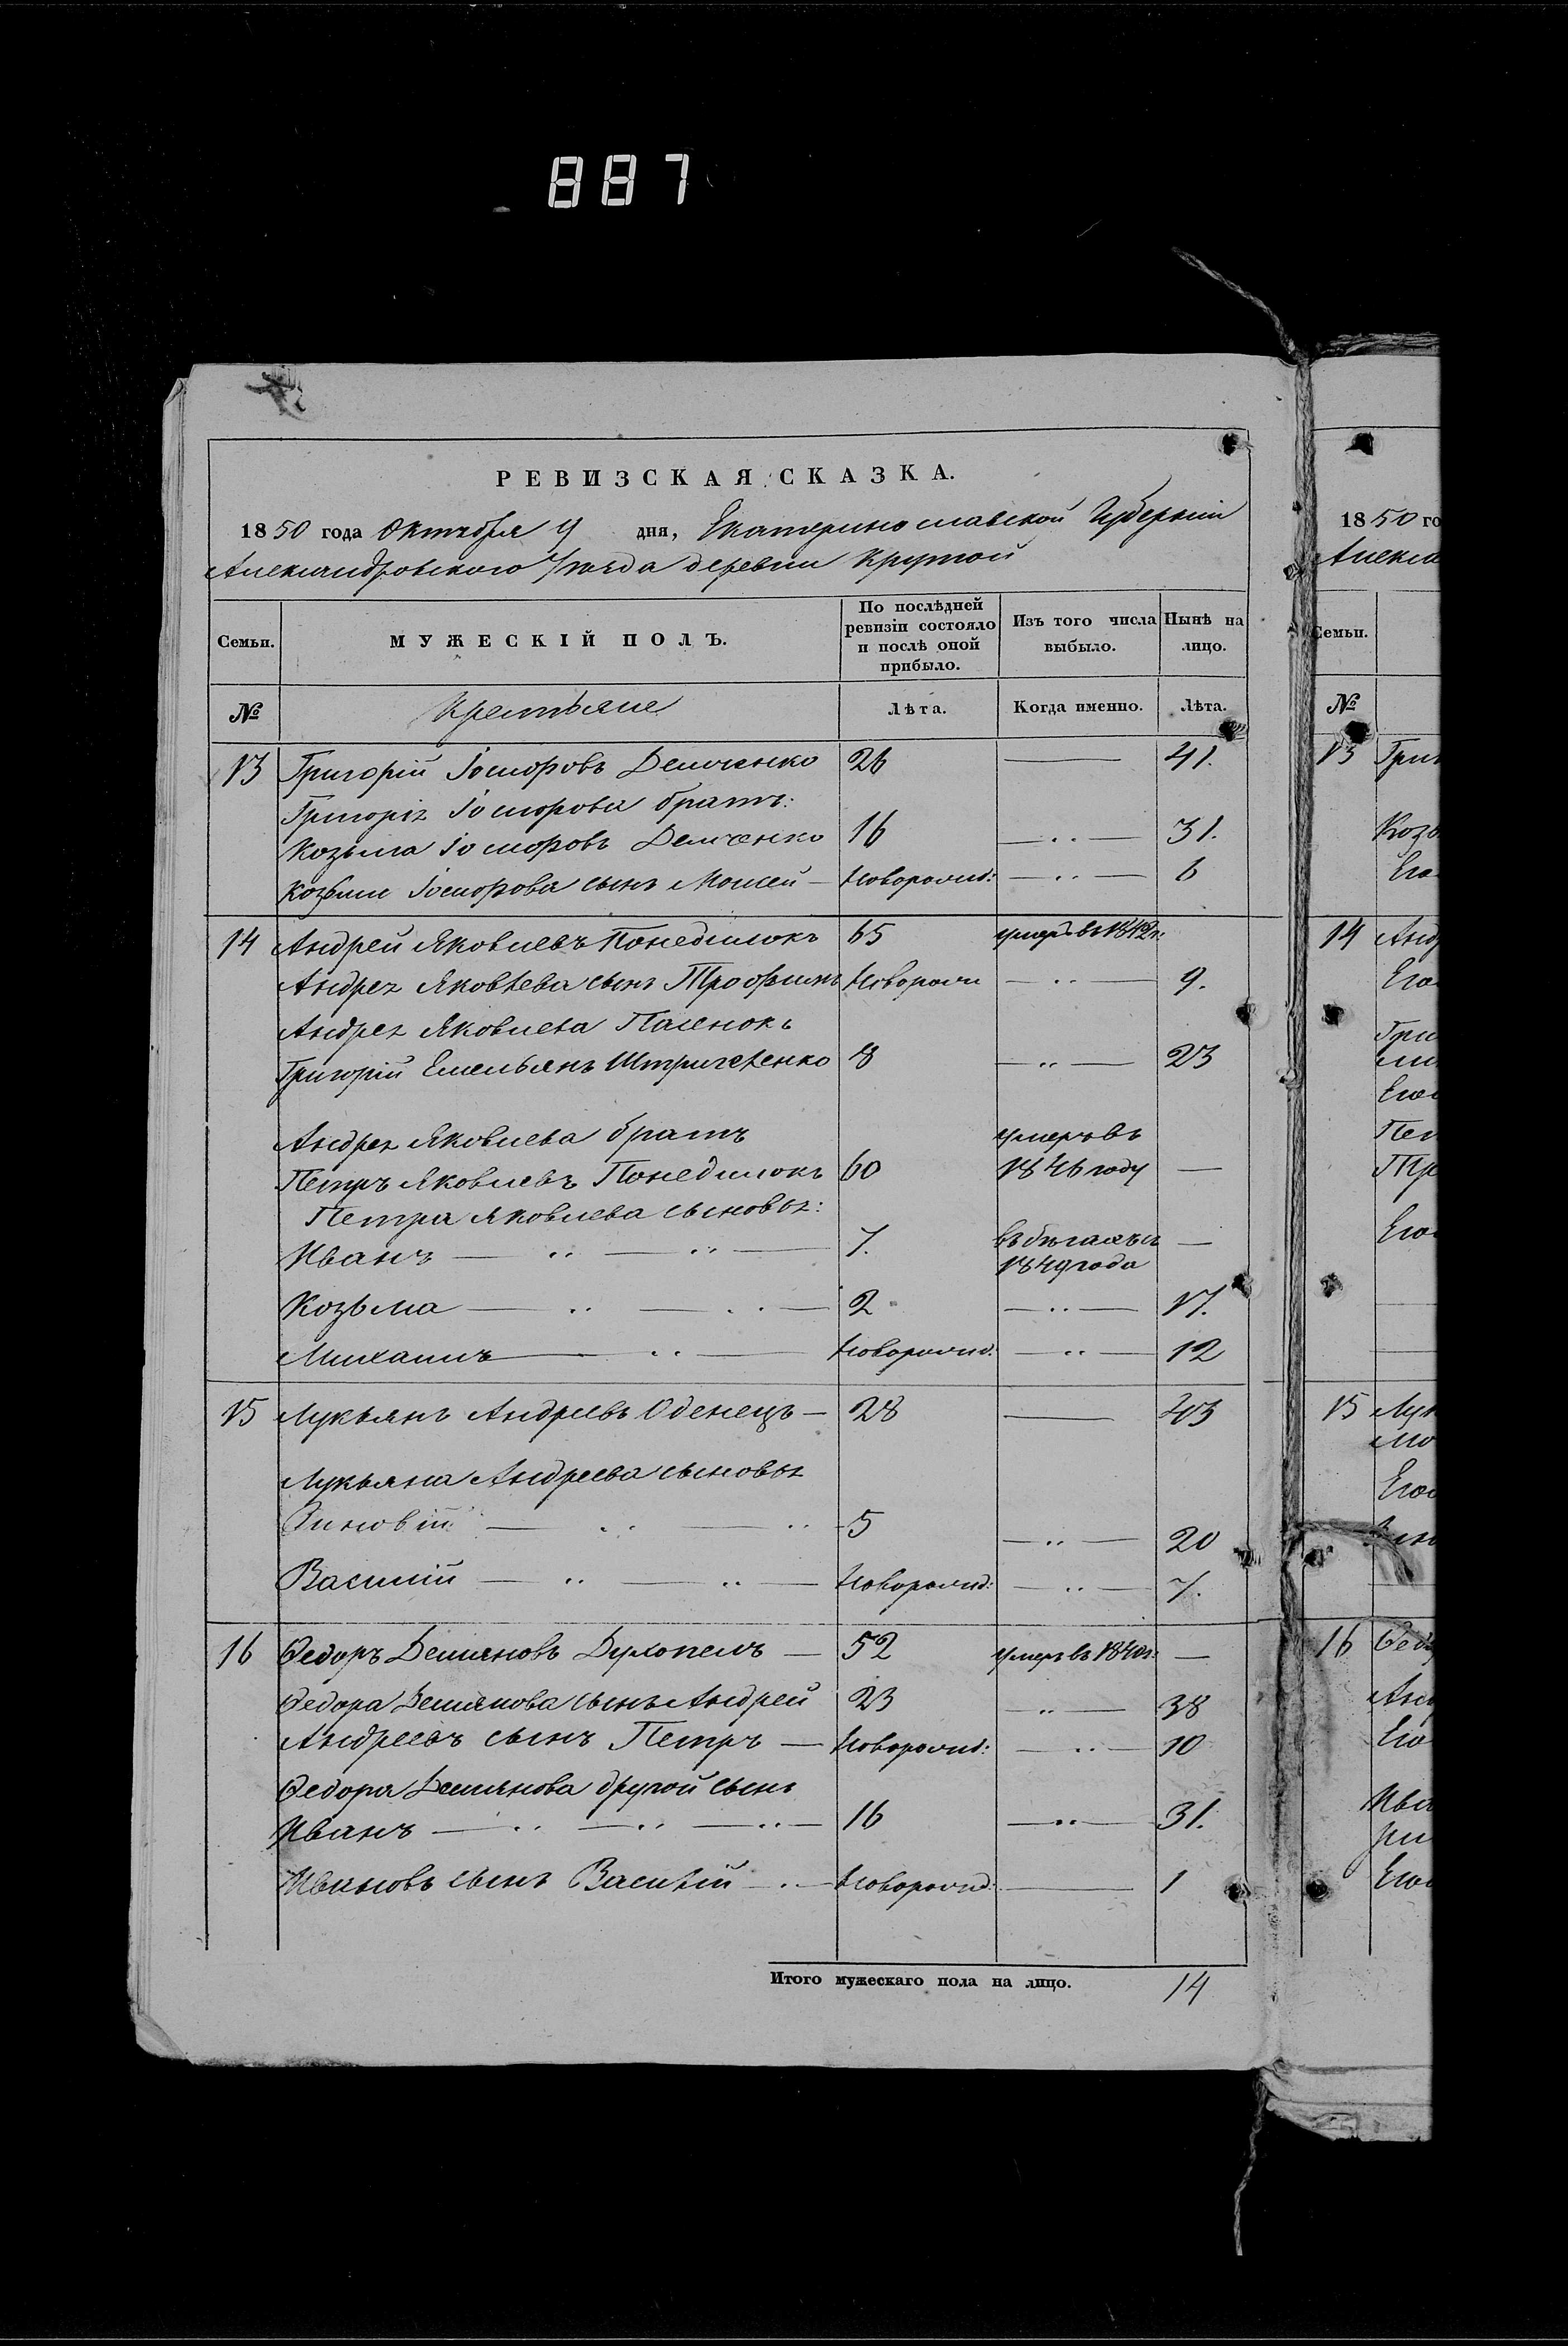 887
РЕВИЗСКАЯ СКАЗКА.
1850 года Октября 9 дня, Екатеринославской Губерніи
Александровского Уѣзда деревни Крутой
Семьи. МУЖЕСКІЙ ПОЛЪ. По послѣдней ревизіи состояло и послѣ оной прибыло. Изъ того числа выбыло. Нынѣ на лицо.
№ Крестьяне Лѣта. Когда именно. Лѣта.
13 Григорій Демченко 26 — 41.
Григорія братъ:
Козьма Демченко 16 — „ — 31.
Козьмы сынъ Мойсей — новорожд: — „ — 6
14 Андрей Яковлевъ Понедилокъ 65 умеръ въ 1842 г.
Андрея Яковлева сынъ Трофимъ новорожд — „ — 9.
Андрея Яковлева
Григорій Емельянъ 8 — „ — 23
Андрея Яковлева братъ
Петръ Яковлевъ Понедилокъ 60 умеръ въ 1846 году —
Петра Яковлева сыновья:
Иванъ — „ — „ — 7. въ бѣгахъ съ 1849 года —
Козьма — „ — „ — 2 — „ — 17.
Михаилъ — „ — новорожд: — „ — 12
15 Лукьянъ Андреевъ Оденецъ — 28 — 43
Лукьяна Андреева сыновья
Зиновій — „ — „ 5 — „ — 20
Василій — „ — „ — новорожд: — „ — 7.
16 Федоръ Демяновъ — 52 умеръ въ 1840 г: —
Федора Демянова сынъ Андрей 23 — „ — 38
Андреевъ сынъ Петръ — новорожд: — „ — 10
Федора Демянова другой сынъ
Иванъ — „ — „ — „ — 16 — „ — 31.
Ивановъ сынъ Василій — „ — новорожд: — 1
Итого мужескаго пола на лицо. 14
1850 го
Алекса
Семьи.
№
13 Григ
Козь
Его
14 Андр
Его
Гри
Его
Пет
Тр
Его
15 Лук
Его
16 Федо
Анд
Его
Ива
Его